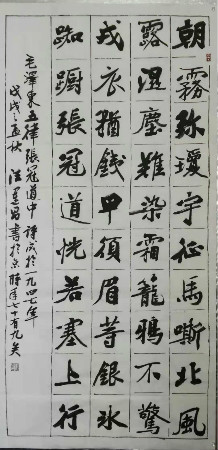 朝霧弥瓊宇征馬嘶北風
露湿塵難染霜籠鴉不驚
戎衣猶鐵甲須眉等銀冰
踟躕張冠道恍若塞上行
毛澤東五律張冠道中 詩成於一九四七年
戊戌之孟秋 汪 書於京時年七十有九矣